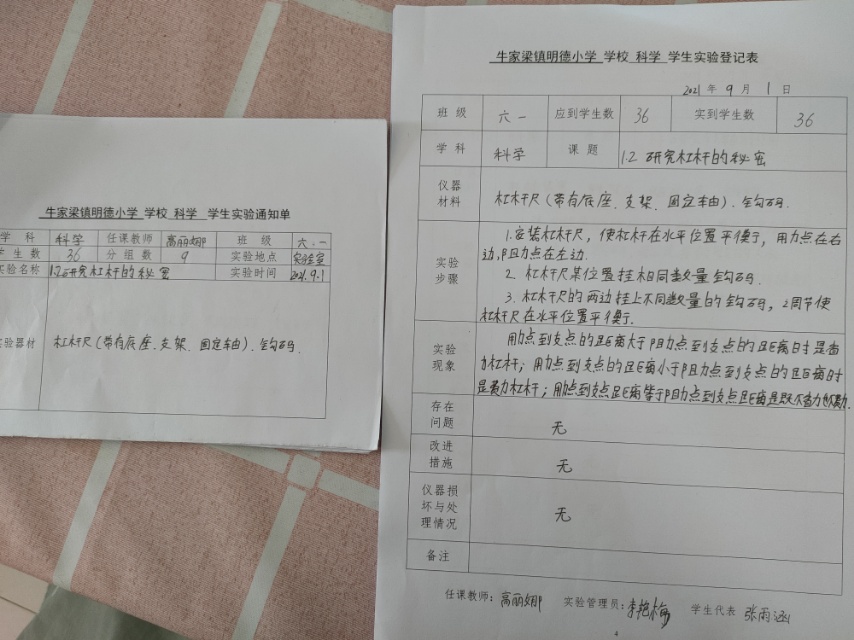 牛家梁镇明德小学 学校 科学 学生实验通知单
学 科 科学 任课教师 高丽娜 班 级 六.一
学生数 36 分组数 9 实验地点 实验室
实验名称 1.2研究杠杆的秘密 实验时间 2021.9.1
实验器材 杠杆尺(带有底座、支架、固定轴)、钩码.
牛家梁镇明德小学 学校 科学 学生实验登记表
2021 年 9 月 1 日
班 级 六一 应到学生数 36 实到学生数 36
学 科 科学 课 题 1.2 研究杠杆的秘密
仪器材料 杠杆尺(带有底座、支架、固定轴)、钩码.
实验步骤
1.安装杠杆尺,使杠杆在水平位置平衡,用力点在右
边,阻力点在左边.
2. 杠杆尺某位置挂相同数量钩码.
3. 杠杆尺的两边挂上不同数量的钩码,调节使
杠杆尺在水平位置平衡.
实验现象
用力点到支点的距离大于阻力点到支点的距离时是省
力杠杆;用力点到支点的距离小于阻力点到支点的距离时
是费力杠杆;用力点到支点距离等于阻力点到支点距离是既不省力也不费力.
存在问题 无
改进措施 无
仪器损坏与处理情况 无
备注
任课教师:高丽娜 实验管理员:李艳梅 学生代表 张雨涵